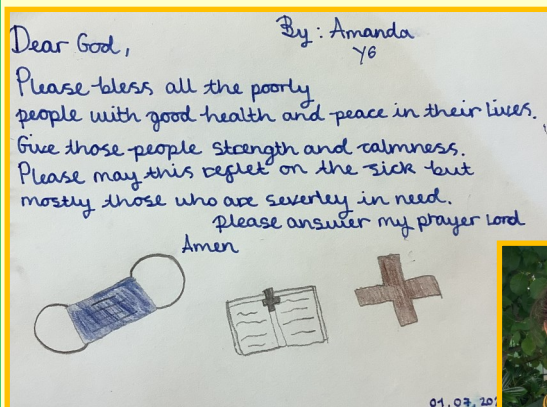 By: Amanda
Y6
Dear God,
Please bless all the poorly
people with good health and peace in their lives.
Give those people strength and calmness.
Please may this reflet on the sick but
mostly those who are severley in need.
Please answer my prayer Lord
Amen